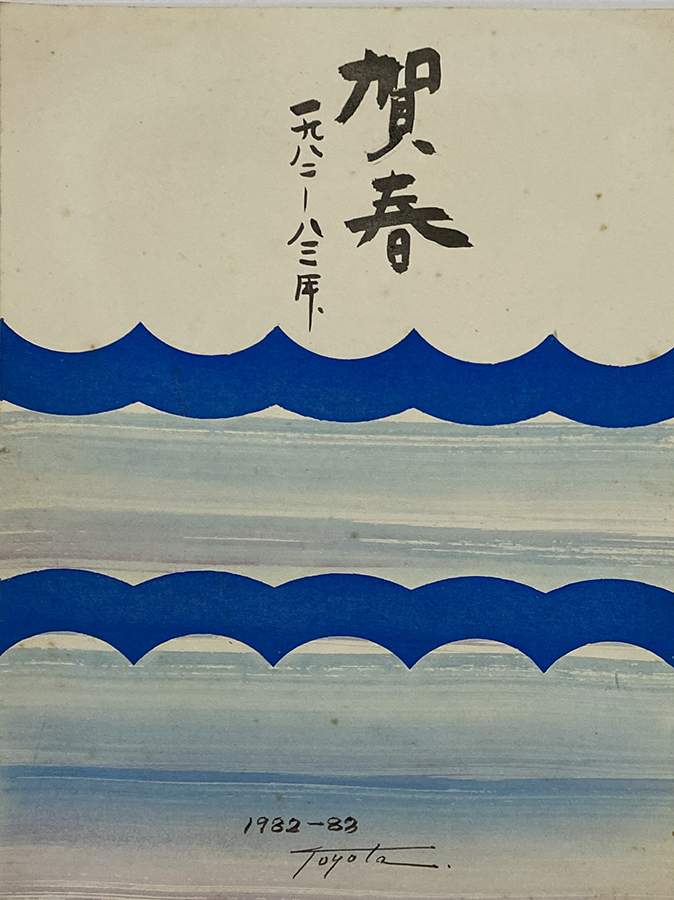 賀春
一九八二ー八三年、
1982-83
Toyota.